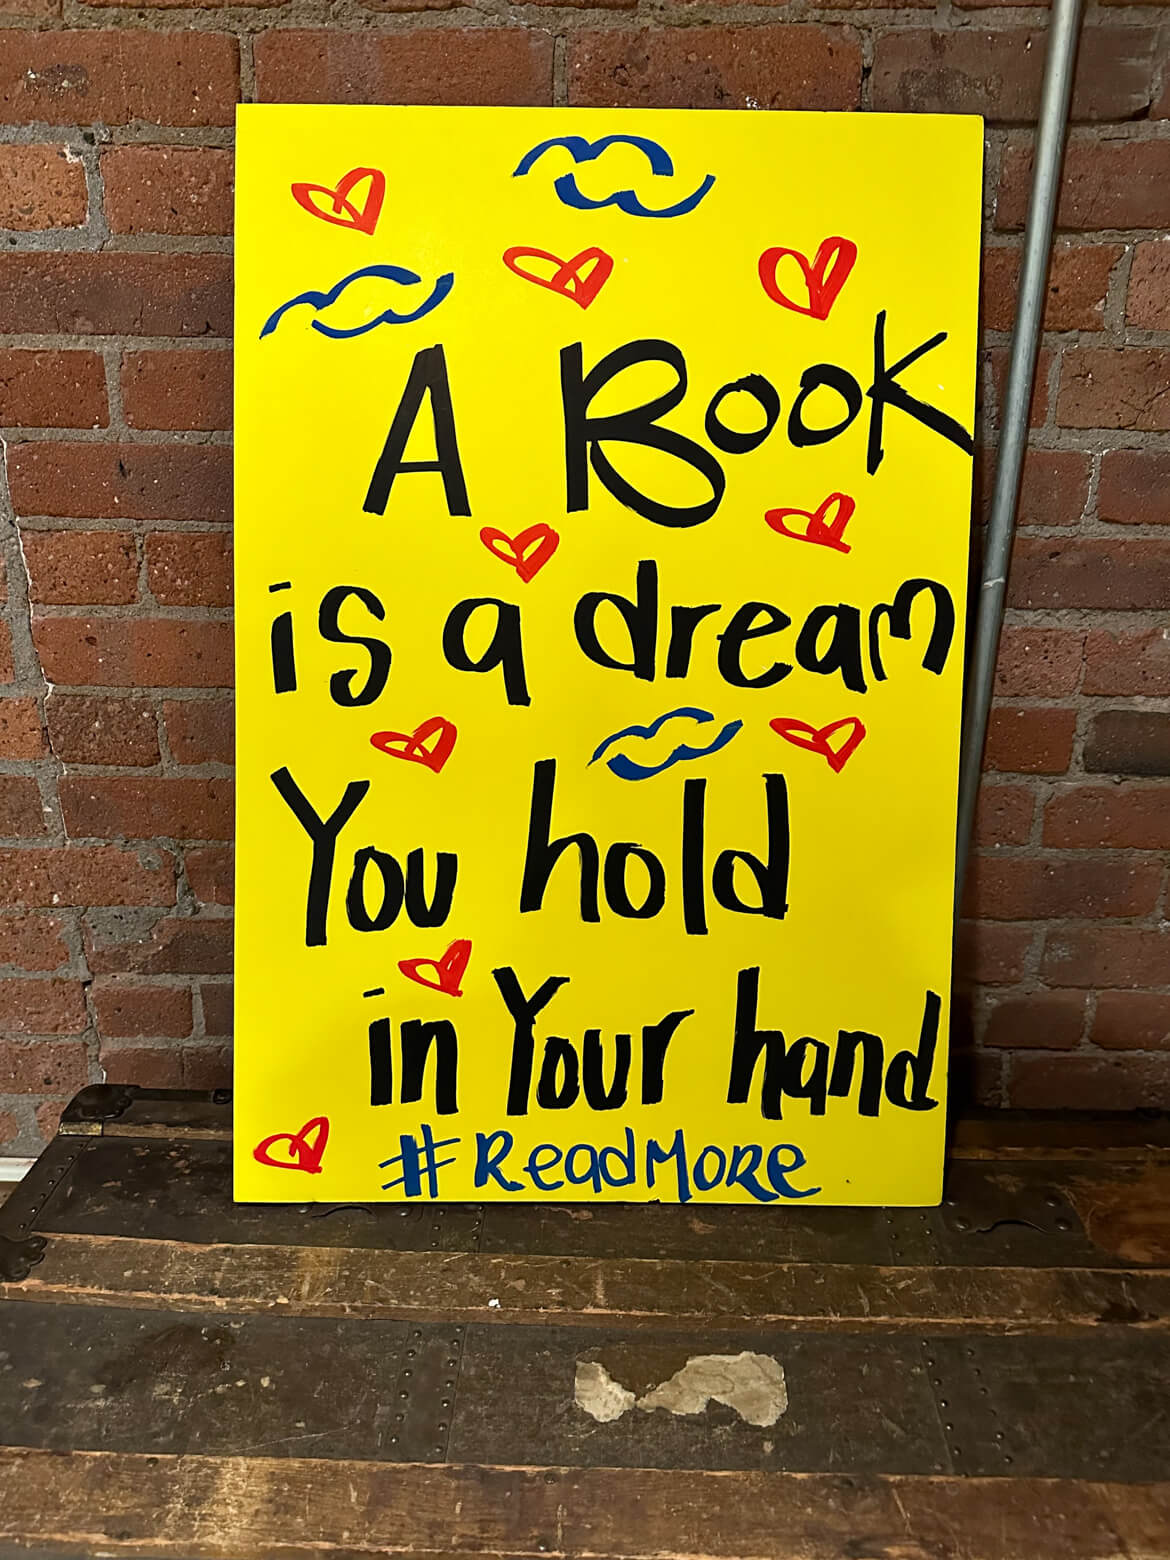 A Book
is a dream
You hold
in Your hand
#ReadMoRe